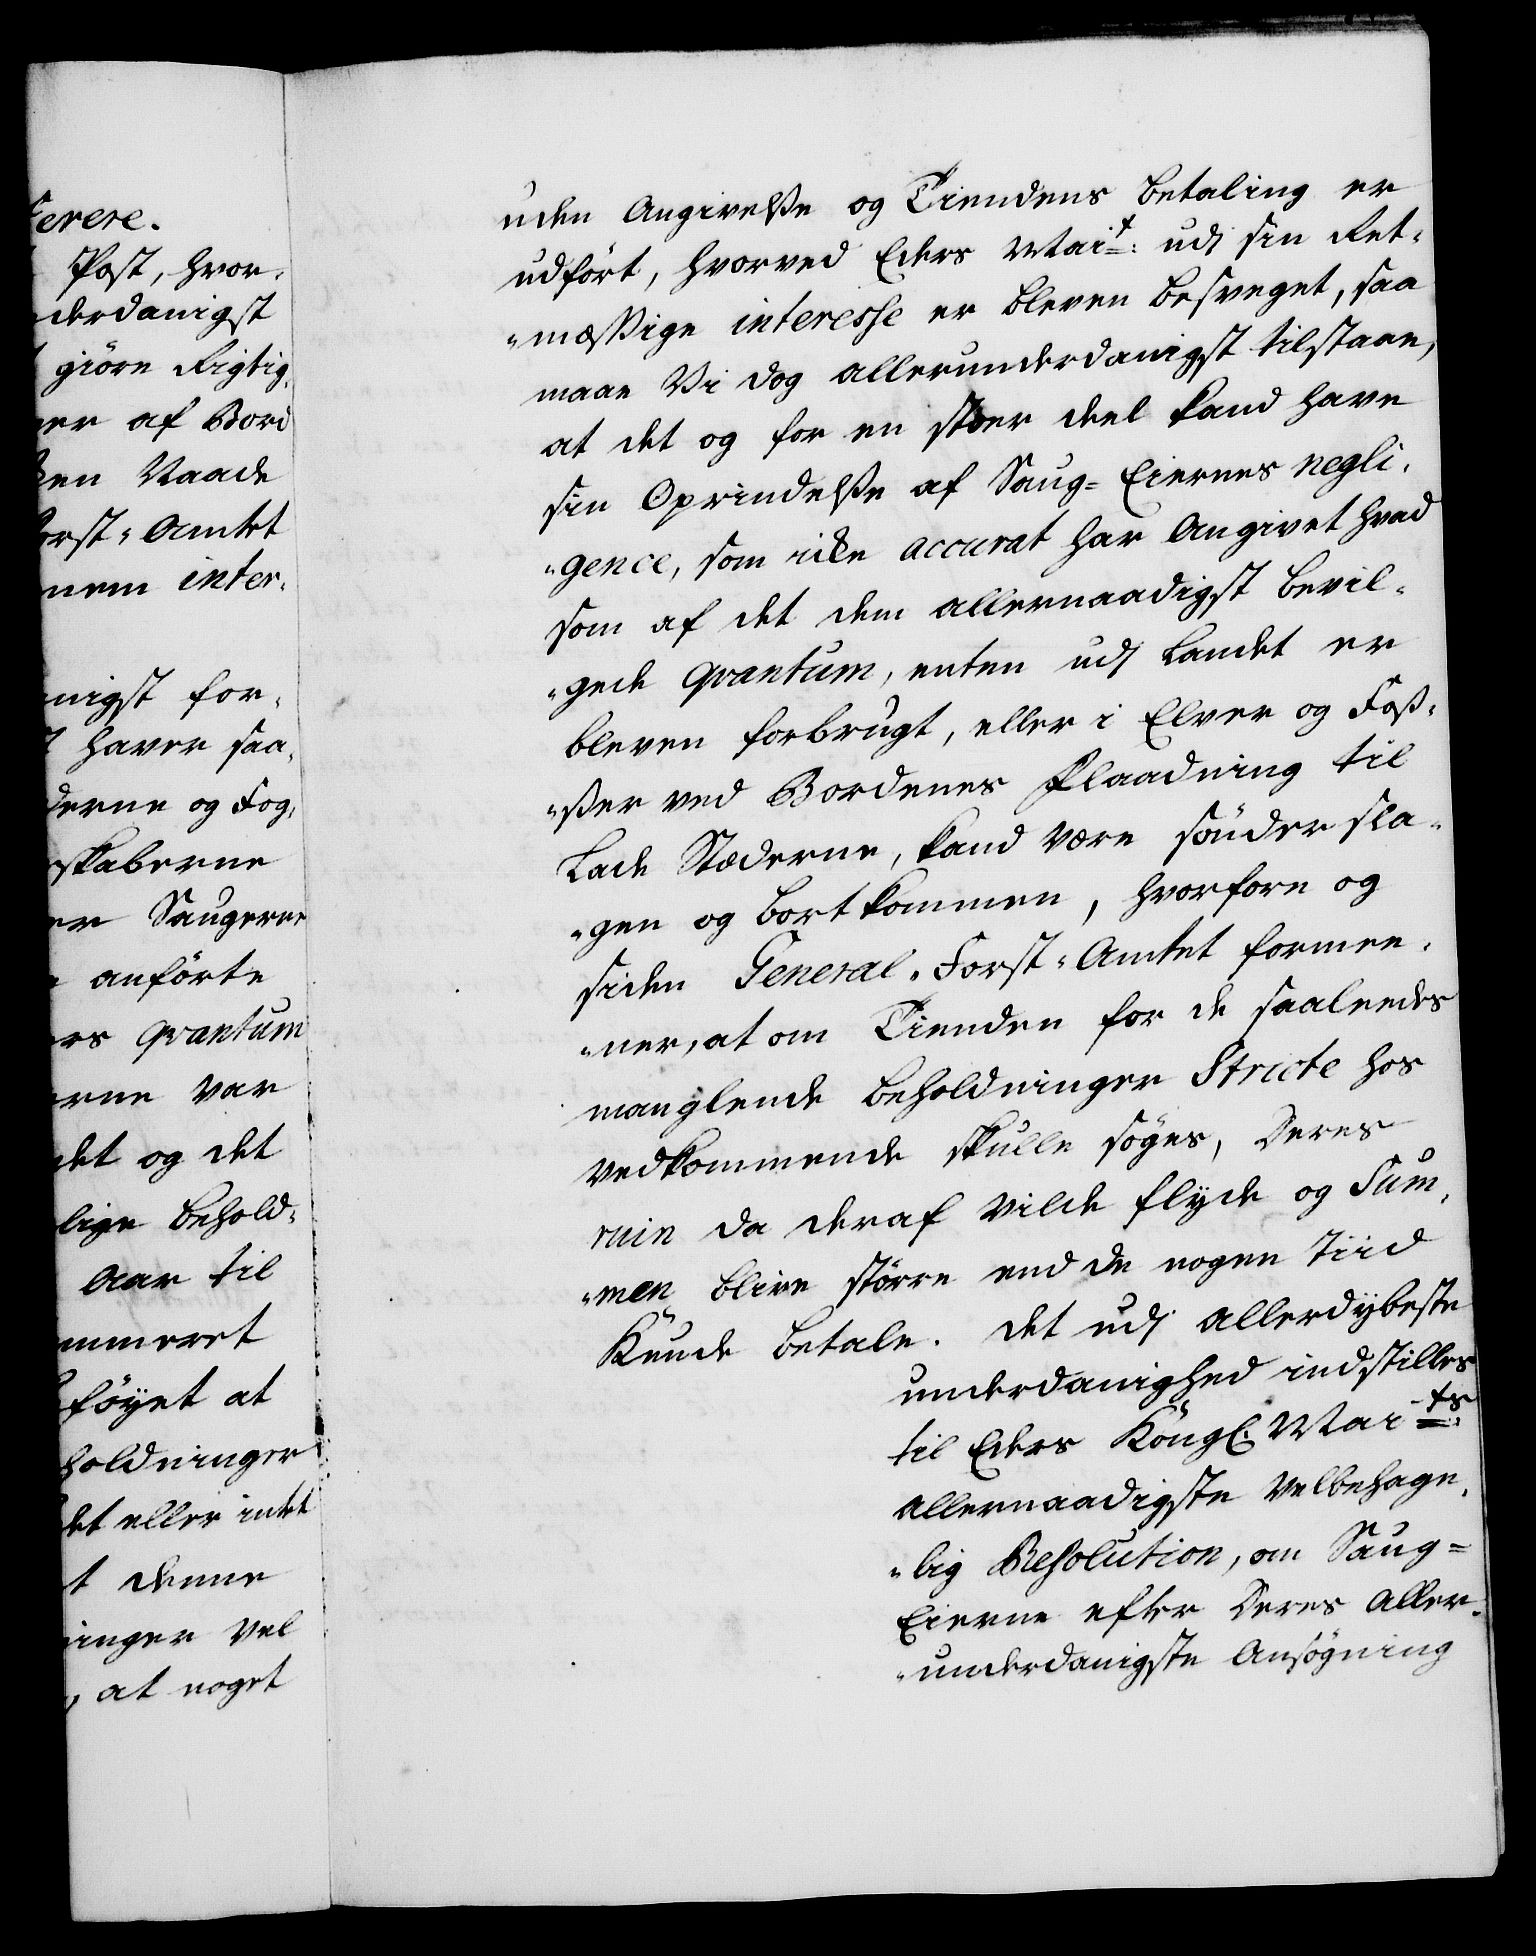 ferere.
Post, hvor-
derdanigst
giöre Rigtig-
er af Bord
en Raade
orst-Amtet
nem inter-
nigst for-
haver saa-
derne og Fog-
skaberne
er Saugerne
anförte
rs qvantum
erne var
det og det
lige Behold-
Aar til
mmeret
föyet at
holdninger
det eller intet
t denne
inger vel
, at noget
uden Angivelße og Tiendens Betaling er
udfört, hvorved Eders Mait: udj sin Ret-
"mæssige interesse er bleven besveget, saa
maae Vi dog allerunderdanigst tilstaae,
at det og for en stoer deel kand have
sin Oprindelße af Saug-Eiernes negli-
"gence, som icke accurat har Angivet hvad
som af det dem allernaadigst bevil-
"gede qvantum, enten udj Landet er
bleven forbrugt, eller i Elver og Foß-
"ßer ved Bordenes Flaadning til
Lade Stæderne, kand være sönder sla-
"gen og bortkommen, hvorfore og
siden General-Forst-Amtet formee-
"ner, at om Tienden for de saaleedes
manglende Beholdninger Stricte hos
vedkommende skulle söges, Deres
ruin da deraf vilde flyde og Sum-
"men blive större end de nogen Tiid
Kunde betale. Det udj allerdybeste
underdanighed indstilles
til Eders Kongl: Maits:
allernaadigste Velbehage-
"lig Resolution, om Saug-
Eierne efter Deres Aller-
"underdanigste Ansögning